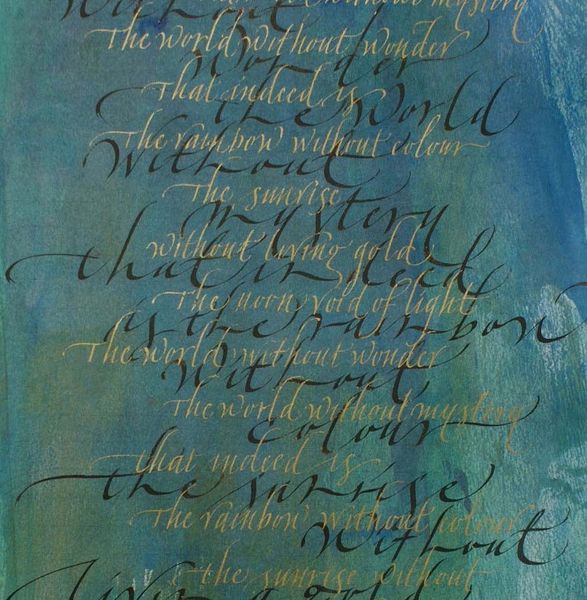 Without
without mystery
The world without wonder
Wonder
That indeed is
the World
The rainbow without colour
Without
The sunrise
mystery
without living gold
that indeed
The noon void of light
is the rainbow
The world without wonder
Without
The world without mystery
colour
that indeed is
the sunrise
The rainbow without colour
Without
the sunrise without
living gold